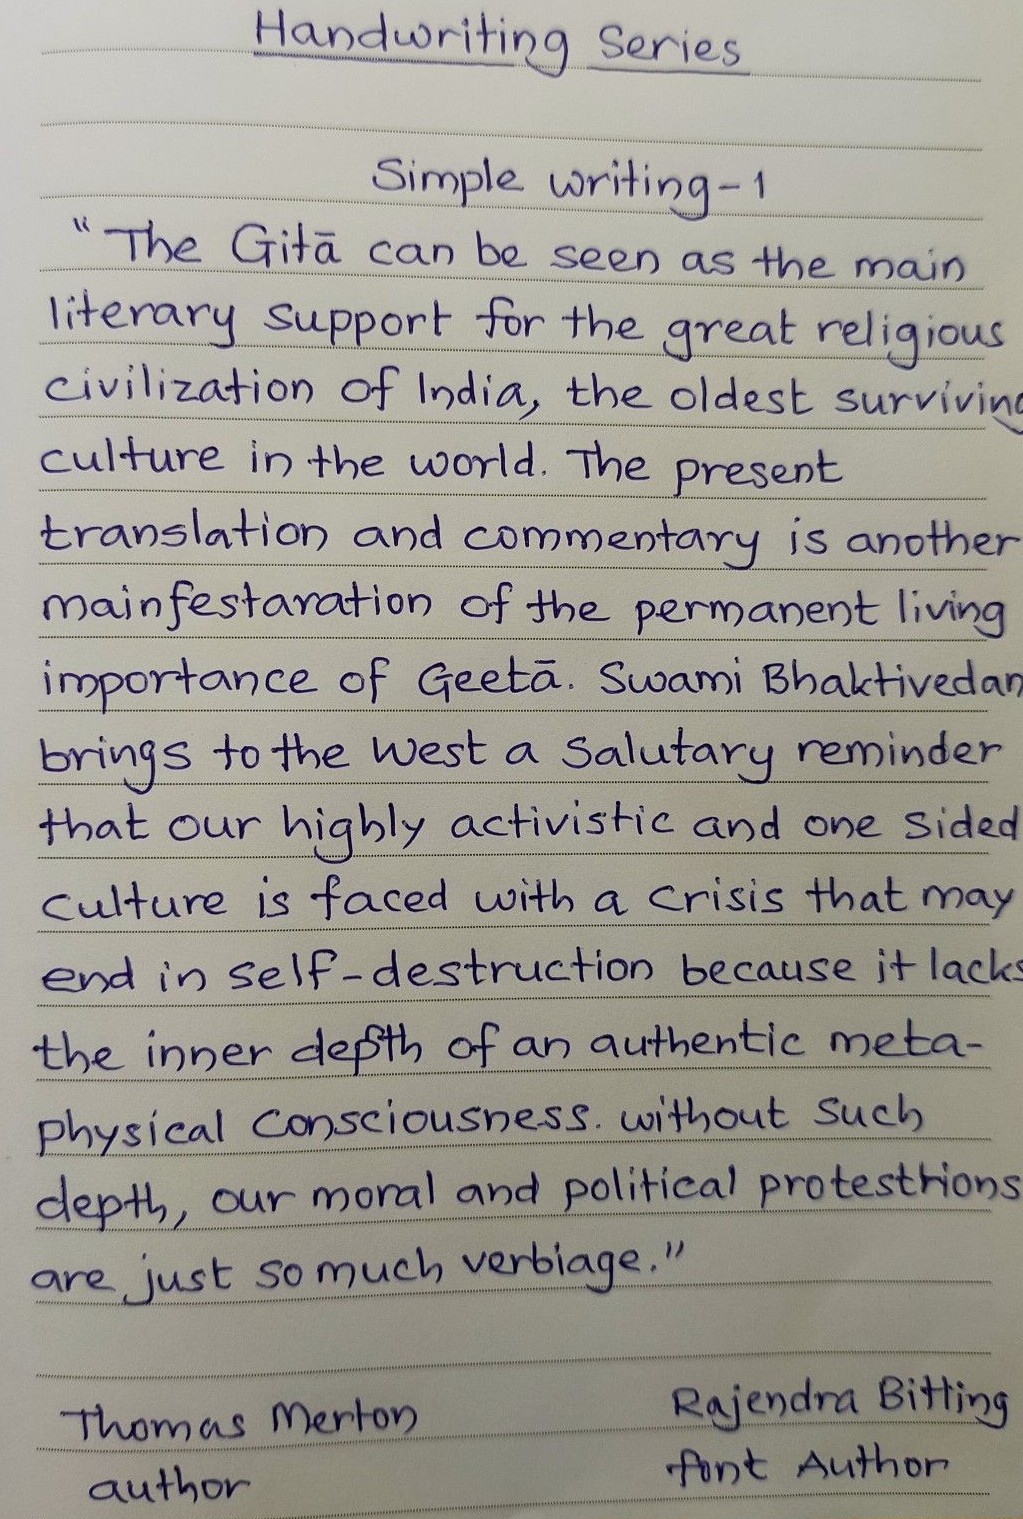 Handwriting Series
Simple writing-1
"The Gitā can be seen as the main
literary support for the great religious
civilization of India, the oldest surviving
culture in the world. The present
translation and commentary is another
mainfestaration of the permanent living
importance of Geetā. Swami Bhaktivedan
brings to the West a Salutary reminder
that our highly activistic and one sided
culture is faced with a crisis that may
end in self-destruction because it lacks
the inner depth of an authentic meta-
physical consciousness. without such
depth, our moral and political protesttions
are just so much verbiage."
Thomas Merton
Rajendra Bitling
author
font Author